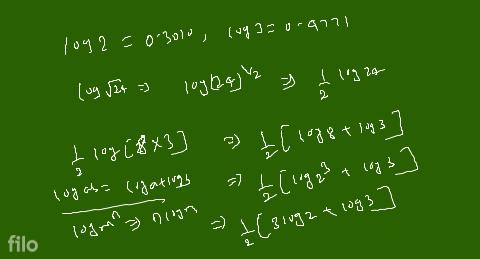 log 2 = 0.3010, log 3 = 0.4771
log √24 ⇒ log(24)^1/2 ⇒ 1/2 log 24
1/2 log[8×3] ⇒ 1/2[log 8 + log 3]
log ab = log a + log b ⇒ 1/2[log 2^3 + log 3]
log m^n ⇒ n log m ⇒ 1/2[3 log 2 + log 3]
filo